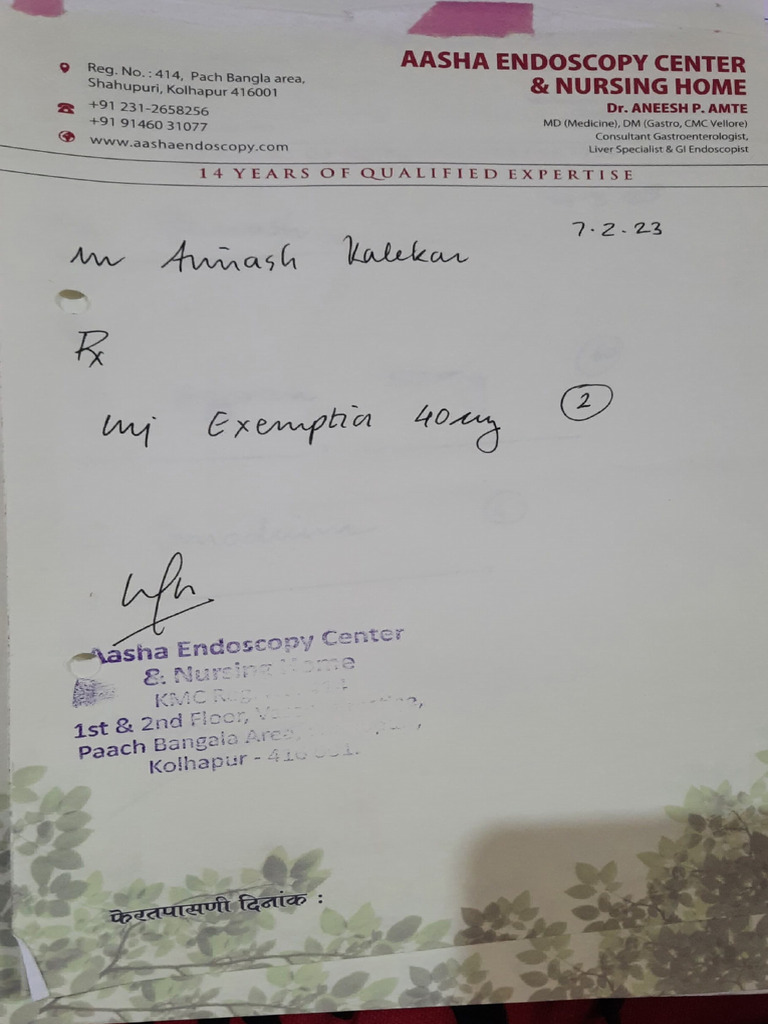 AASHA ENDOSCOPY CENTER
& NURSING HOME
Dr. ANEESH P. AMTE
MD (Medicine), DM (Gastro, CMC Vellore)
Consultant Gastroenterologist,
Liver Specialist & GI Endoscopist
Reg. No. : 414, Pach Bangla area,
Shahupuri, Kolhapur 416001
+91 231-2658256
+91 91460 31077
www.aashaendoscopy.com
14 YEARS OF QUALIFIED EXPERTISE
7.2.23
Mr Avinash Kalekar
Rx
inj Exemptia 40mg 2
Aasha Endoscopy Center
& Nursing Home
KMC
1st & 2nd Floor,
Paach Bangala Area,
Kolhapur - 416
फेरतपासणी दिनांक :